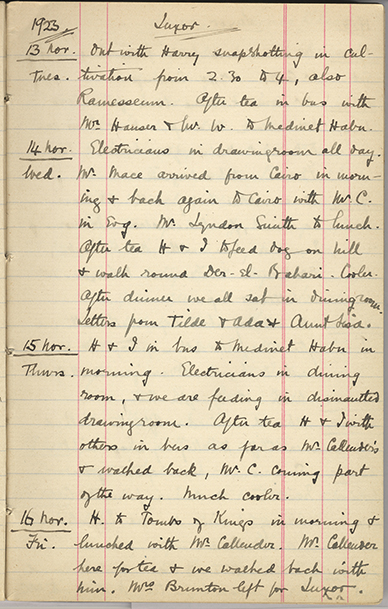 1923 Luxor.
13 Nov. Out with Harry snapshotting in cul-
Tues. tivation from 2.30 to 4, also
Ramesseum. After tea in bus with
Mr Hauser & W. W. to Medinet Habu.
14 Nov. Electricians in drawingroom all day.
Wed. Mr. Mace arrived from Cairo in morn-
ing & back again to Cairo with Mr. C.
in Evg. Mr. Lyndon Smith to lunch.
After tea H & I to feed dog on hill
& walk round Der-el-Bahari. Cooler.
After dinner we all sat in diningroom.
Letters from Tilde & Ada & Aunt
15 Nov. H & I in bus to Medinet Habu in
Thurs. morning. Electricians in dining
room, & we are feeding in dismantled
drawingroom. After tea H & I with
others in bus as far as Mr Callender's
& walked back, Mr. C. coming part
of the way. Much cooler.
16 Nov. H. to Tombs of Kings in morning &
Fri. lunched with Mr. Callender. Mr. Callender
here for tea & we walked back with
him. Mrs Brunton left for Luxor.